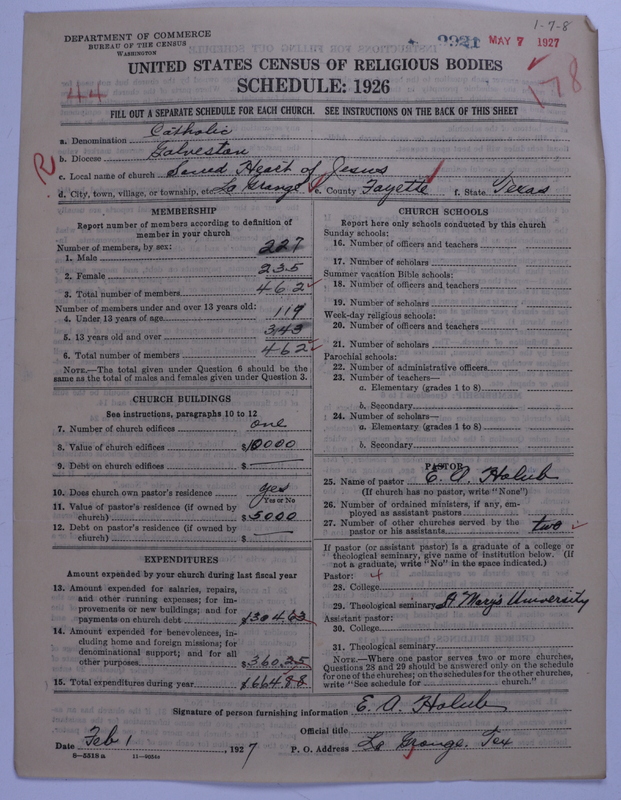 1-7-8
DEPARTMENT OF COMMERCE
BUREAU OF THE CENSUS
WASHINGTON
9921 MAY 7 1927
UNITED STATES CENSUS OF RELIGIOUS BODIES
SCHEDULE: 1926
44
178
FILL OUT A SEPARATE SCHEDULE FOR EACH CHURCH. SEE INSTRUCTIONS ON THE BACK OF THIS SHEET
R
a. Denomination Catholic
b. Diocese Galveston
c. Local name of church Sacred Heart of Jesus
d. City, town, village, or township, etc. La Grange e. County Fayette f. State Texas
MEMBERSHIP
Report number of members according to definition of
member in your church
Number of members, by sex:
1. Male 227
2. Female 235
3. Total number of members 462
Number of members under and over 13 years old:
4. Under 13 years of age 119
5. 13 years old and over 343
6. Total number of members 462
NOTE.—The total given under Question 6 should be
same as the total of males and females given under Question 3.
CHURCH BUILDINGS
See instructions, paragraphs 10 to 12
7. Number of church edifices one
8. Value of church edifices $10000
9. Debt on church edifices $
10. Does church own pastor's residence yes
Yes or No
11. Value of pastor's residence (if owned by
church) $5000
12. Debt on pastor's residence (if owned by
church) $
EXPENDITURES
Amount expended by your church during last fiscal year
13. Amount expended for salaries, repairs,
and other running expenses; for im-
provements or new buildings; and for
payments on church debt $304.63
14. Amount expended for benevolences, in-
cluding home and foreign missions; for
denominational support; and for all
other purposes $360.25
15. Total expenditures during year $664.88
CHURCH SCHOOLS
Report here only schools conducted by this church
Sunday schools:
16. Number of officers and teachers
17. Number of scholars
Summer vacation Bible schools:
18. Number of officers and teachers
19. Number of scholars
Week-day religious schools:
20. Number of officers and teachers
21. Number of scholars
Parochial schools:
22. Number of administrative officers
23. Number of teachers—
a. Elementary (grades 1 to 8)
b. Secondary
24. Number of scholars—
a. Elementary (grades 1 to 8)
b. Secondary
PASTOR
25. Name of pastor E. A. Holub
(If church has no pastor, write "None")
26. Number of ordained ministers, if any, em-
ployed as assistant pastors
27. Number of other churches served by the
pastor or his assistants two
If pastor (or assistant pastor) is a graduate of a college or
theological seminary, give name of institution below. (If
not a graduate, write "No" in the space indicated.)
Pastor:
28. College
29. Theological seminary St Mary's University
Assistant pastor:
30. College
31. Theological seminary
NOTE.—Where one pastor serves two or more churches,
Questions 28 and 29 should be answered only on the schedule
for one of the churches; on the schedules for the other churches,
write "See schedule for church."
Signature of person furnishing information E. A. Holub
Official title
Date Feb 1, 1927 P. O. Address La Grange, Tex
8-5518 a